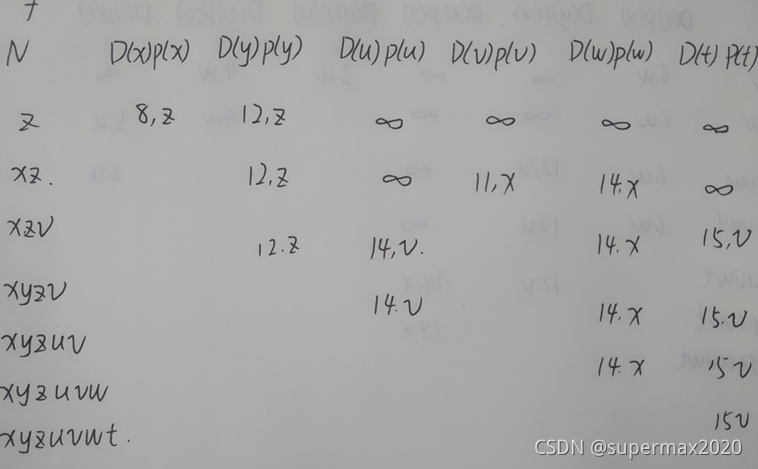 N D(x)p(x) D(y)p(y) D(u)p(u) D(v)p(v) D(w)p(w) D(t) p(t)
z 8,z 12,z ∞ ∞ ∞ ∞
xz. 12,z ∞ 11,x 14.x ∞
xzv 12.z 14,v. 14.x 15,v
xyzv 14.v 14.x 15.v
xyzuv 14.x 15v
xyzuvw 15v
xyzuvwt.
CSDN @supermax2020